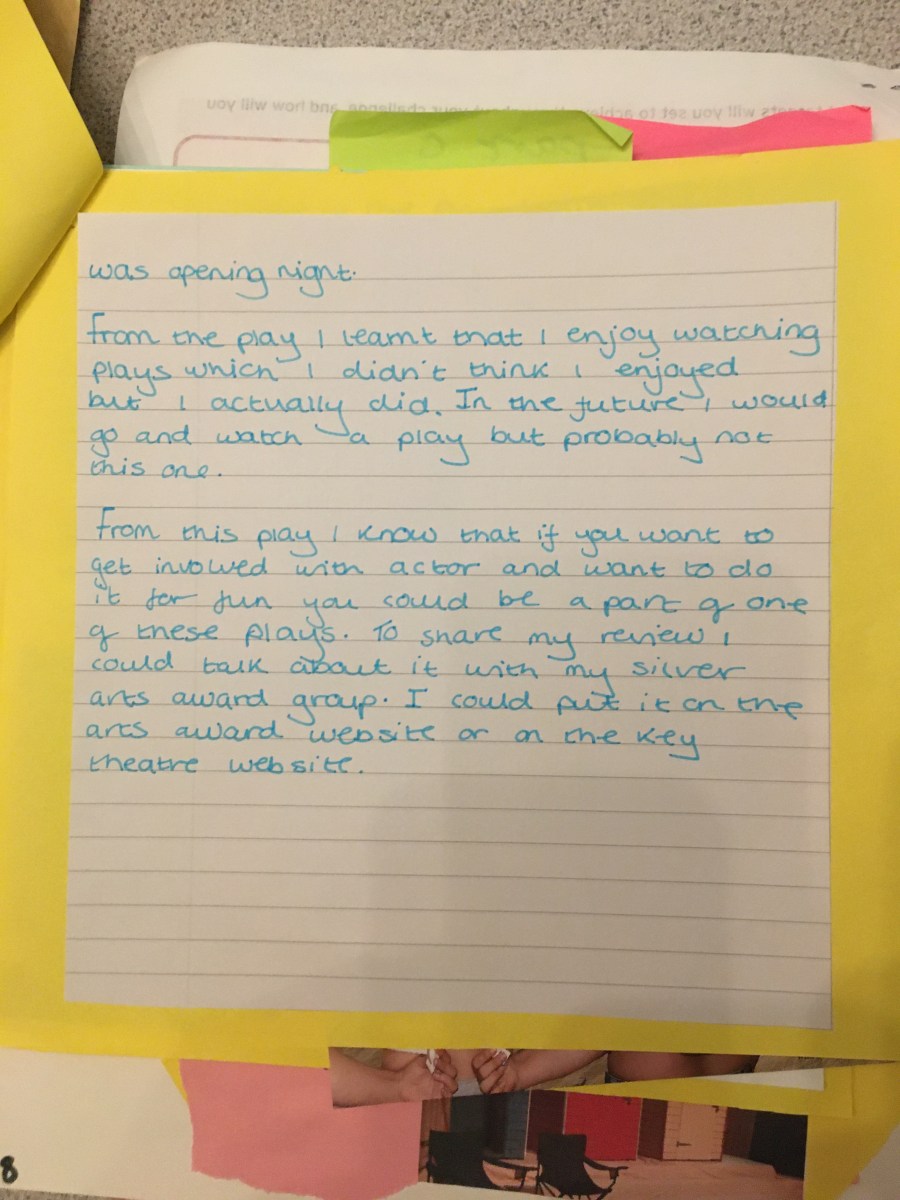 was opening night.
From the play I learnt that I enjoy watching
plays which I didn't think I enjoyed
but I actually did. In the future I would
go and watch a play but probably not
this one.
From this play I know that if you want to
get involved with actor and want to do
it for fun you could be a part of one
of these plays. To share my review I
could talk about it with my silver
arts award group. I could put it on the
arts award website or on the key
theatre website.
8